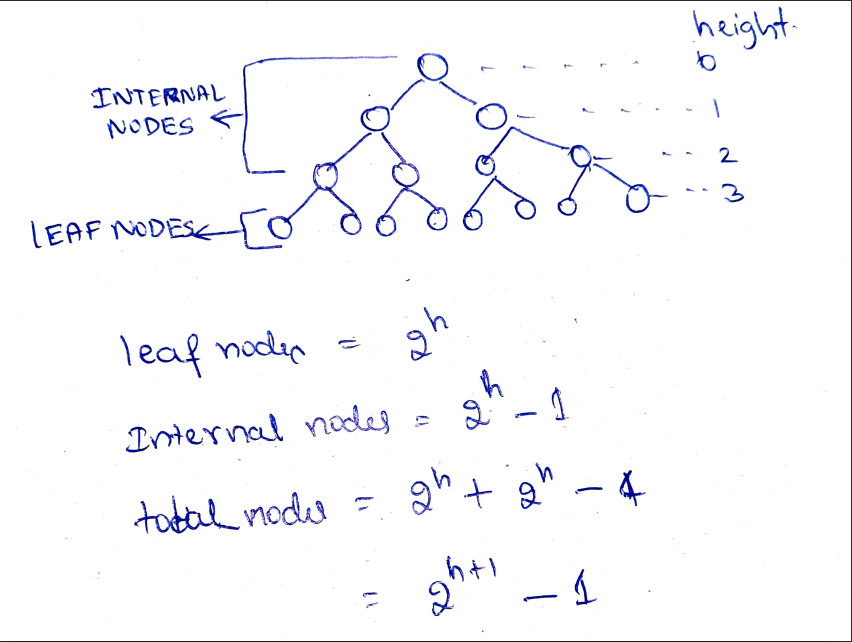 height.
0
INTERNAL
NODES
1
2
3
LEAF NODES
leaf nodes = 2^h
Internal nodes = 2^h - 1
total nodes = 2^h + 2^h - 1
= 2^h+1 - 1